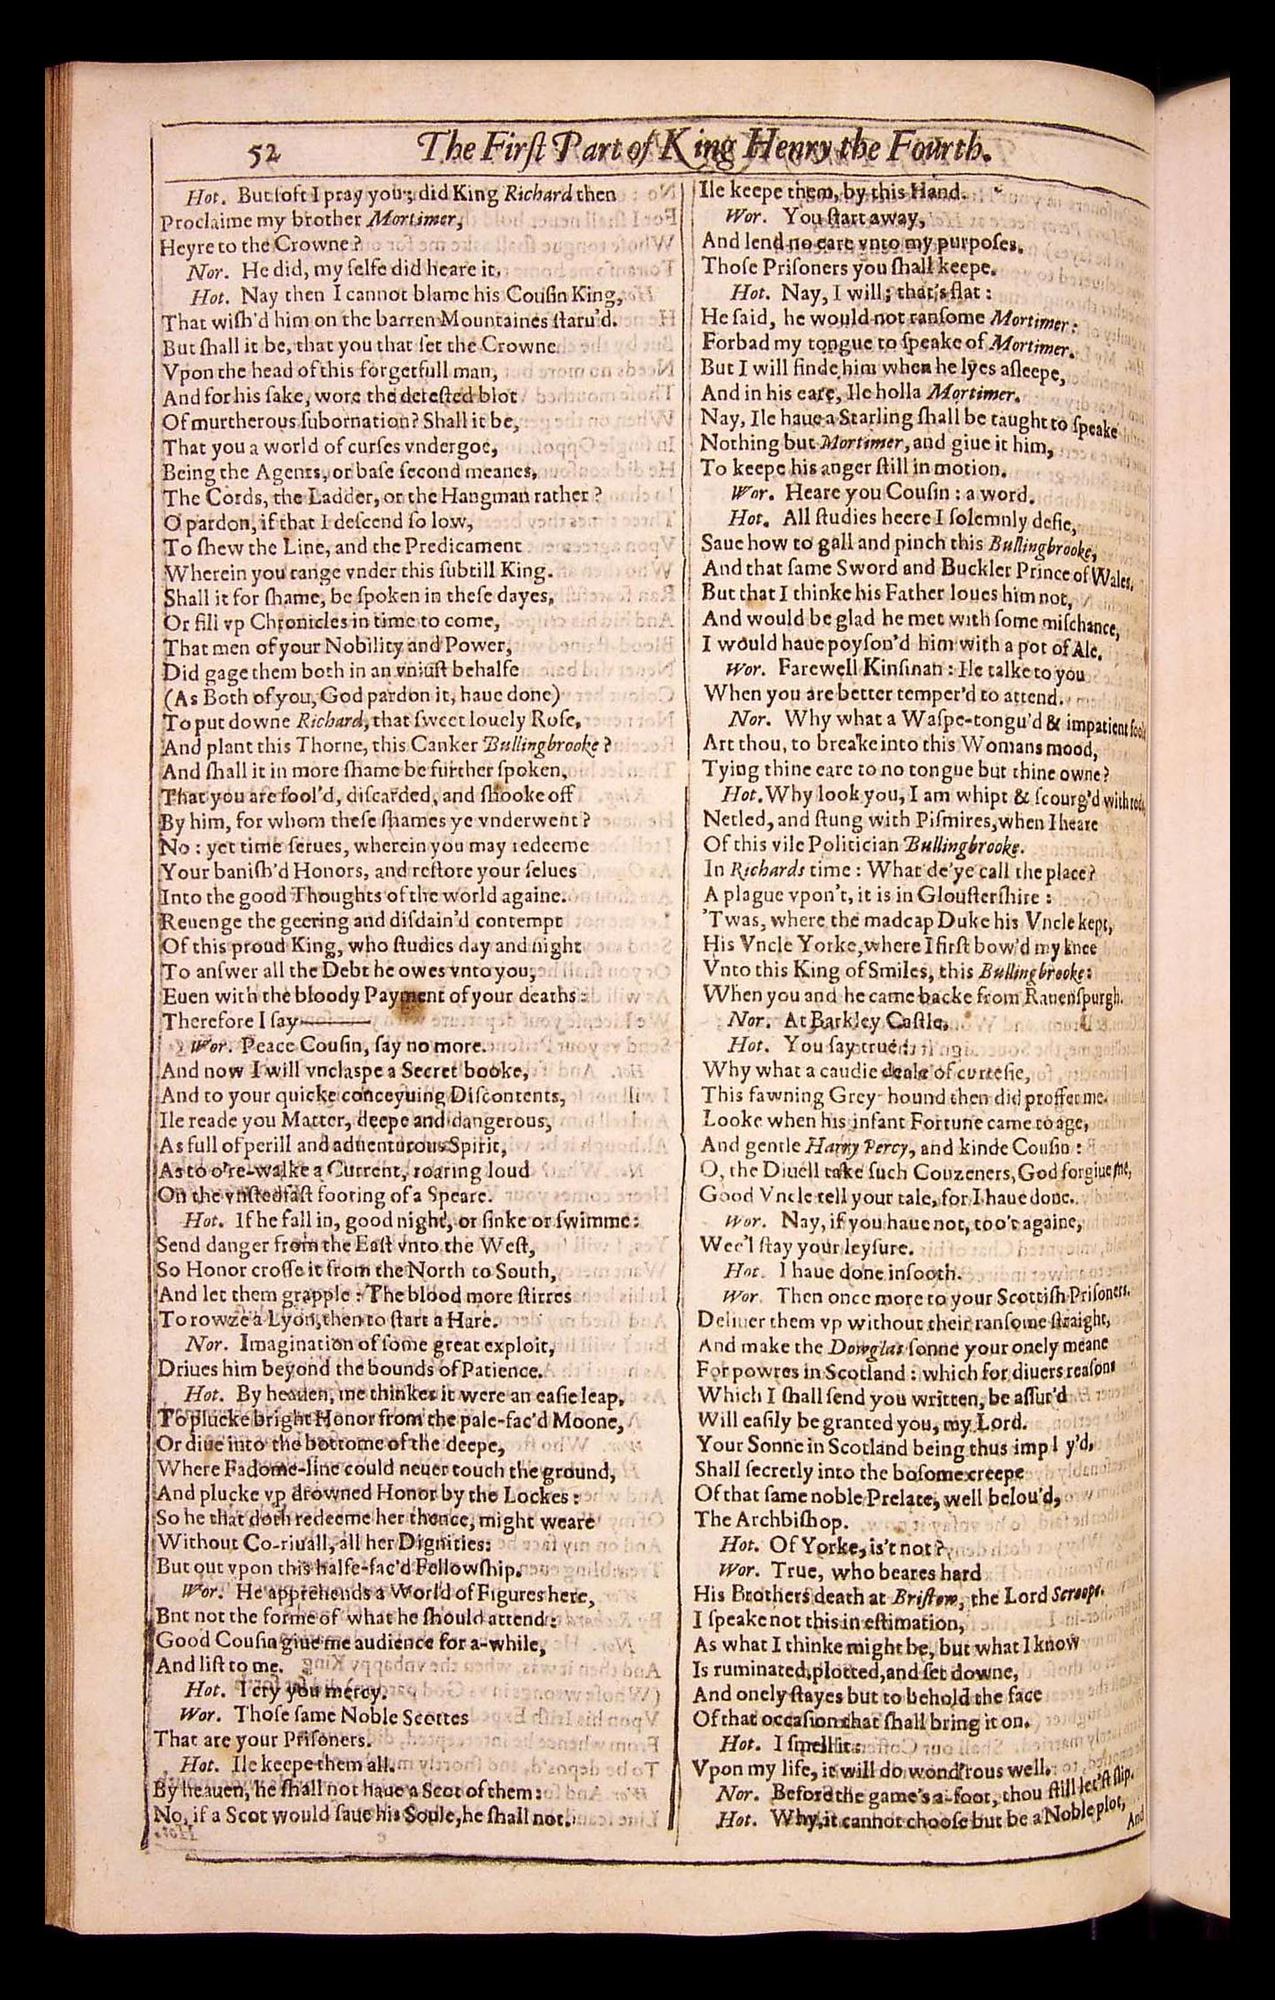 52
The First Part of King Henry the Fourth.
Hot. But soft I pray you; did King Richard then
Proclaime my brother Mortimer,
Heyre to the Crowne?
Nor. He did, my selfe did heare it.
Hot. Nay then I cannot blame his Cousin King,
That wish'd him on the barren Mountaines staru'd.
But shall it be, that you that set the Crowne
Vpon the head of this forgetfull man,
And for his sake, wore the detested blot
Of murtherous subornation? Shall it be,
That you a world of curses vndergoe,
Being the Agents, or base second meanes,
The Cords, the Ladder, or the Hangman rather?
O pardon, if that I descend so low,
To shew the Line, and the Predicament
Wherein you range vnder this subtill King.
Shall it for shame, be spoken in these dayes,
Or fill vp Chronicles in time to come,
That men of your Nobility and Power,
Did gage them both in an vniust behalfe
(As Both of you, God pardon it, haue done)
To put downe Richard, that sweet louely Rose,
And plant this Thorne, this Canker Bullingbrooke?
And shall it in more shame be further spoken,
That you are fool'd, discarded, and shooke off
By him, for whom these shames ye vnderwent?
No: yet time serues, wherein you may redeeme
Your banish'd Honors, and restore your selues
Into the good Thoughts of the world againe.
Reuenge the geering and disdain'd contempt
Of this proud King, who studies day and night
To answer all the Debt he owes vnto you,
Euen with the bloody Payment of your deaths:
Therefore I say———
Wor. Peace Cousin, say no more.
And now I will vnclaspe a Secret booke,
And to your quicke conceyuing Discontents,
Ile reade you Matter, deepe and dangerous,
As full of perill and aduenturous Spirit,
As to o're-walke a Current, roaring loud
On the vnstedfast footing of a Speare.
Hot. If he fall in, good night, or sinke or swimme:
Send danger from the East vnto the West,
So Honor crosse it from the North to South,
And let them grapple: The blood more stirres
To rowze a Lyon, then to start a Hare.
Nor. Imagination of some great exploit,
Driues him beyond the bounds of Patience.
Hot. By heauen, me thinkes it were an easie leap,
To plucke bright Honor from the pale-fac'd Moone,
Or diue into the bottome of the deepe,
Where Fadome-line could neuer touch the ground,
And plucke vp drowned Honor by the Lockes:
So he that doth redeeme her thence, might weare
Without Co-riuall, all her Dignities:
But out vpon this halfe-fac'd Fellowship.
Wor. He apprehends a World of Figures here,
Bnt not the forme of what he should attend:
Good Cousin giue me audience for a-while,
And list to me.
Hot. I cry you mercy.
Wor. Those same Noble Scottes
That are your Prisoners.
Hot. Ile keepe them all.
By heauen, he shall not haue a Scot of them:
No, if a Scot would saue his Soule, he shall not.
Ile keepe them, by this Hand.
Wor. You start away,
And lend no eare vnto my purposes.
Those Prisoners you shall keepe.
Hot. Nay, I will; that's flat:
He said, he would not ransome Mortimer:
Forbad my tongue to speake of Mortimer.
But I will finde him when he lyes asleepe,
And in his eare, Ile holla Mortimer.
Nay, Ile haue a Starling shall be taught to speake
Nothing but Mortimer, and giue it him,
To keepe his anger still in motion.
Wor. Heare you Cousin: a word.
Hot. All studies heere I solemnly defie,
Saue how to gall and pinch this Bullingbrooke,
And that same Sword and Buckler Prince of Wales.
But that I thinke his Father loues him not,
And would be glad he met with some mischance,
I would haue poyson'd him with a pot of Ale.
Wor. Farewell Kinsinan: Ile talke to you
When you are better temper'd to attend.
Nor. Why what a Waspe-tongu'd & impatient foole
Art thou, to breake into this Womans mood,
Tying thine eare to no tongue but thine owne?
Hot. Why look you, I am whipt & scourg'd with rods,
Netled, and stung with Pismires, when I heare
Of this vile Politician Bullingbrooke.
In Richards time: What de'ye call the place?
A plague vpon't, it is in Gloustershire:
'Twas, where the madcap Duke his Vncle kept,
His Vncle Yorke, where I first bow'd my knee
Vnto this King of Smiles, this Bullingbrooke:
When you and he came backe from Rauenspurgh.
Nor. At Barkley Castle.
Hot. You say true:
Why what a caudie deale of curtesie,
This fawning Grey-hound then did proffer me.
Looke when his infant Fortune came to age,
And gentle Harry Percy, and kinde Cousin:
O, the Diuell take such Couzeners, God forgiue me,
Good Vncle tell your tale, for I haue done.
Wor. Nay, if you haue not, too't againe,
Wee'l stay your leysure.
Hot. I haue done insooth.
Wor. Then once more to your Scottish Prisoners.
Deliuer them vp without their ransome straight,
And make the Dowglas sonne your onely meane
For powres in Scotland: which for diuers reasons
Which I shall send you written, be assur'd
Will easily be granted you, my Lord.
Your Sonne in Scotland being thus impl y'd,
Shall secretly into the bosome creepe
Of that same noble Prelate, well belou'd,
The Archbishop.
Hot. Of Yorke, is't not?
Wor. True, who beares hard
His Brothers death at Bristow, the Lord Scroope.
I speake not this in estimation,
As what I thinke might be, but what I know
Is ruminated, plotted, and set downe,
And onely stayes but to behold the face
Of that occasion that shall bring it on.
Hot. I smell it:
Vpon my life, it will do wond'rous well.
Nor. Before the game's a-foot, thou still let'st slip.
Hot. Why, it cannot choose but be a Noble plot,
And